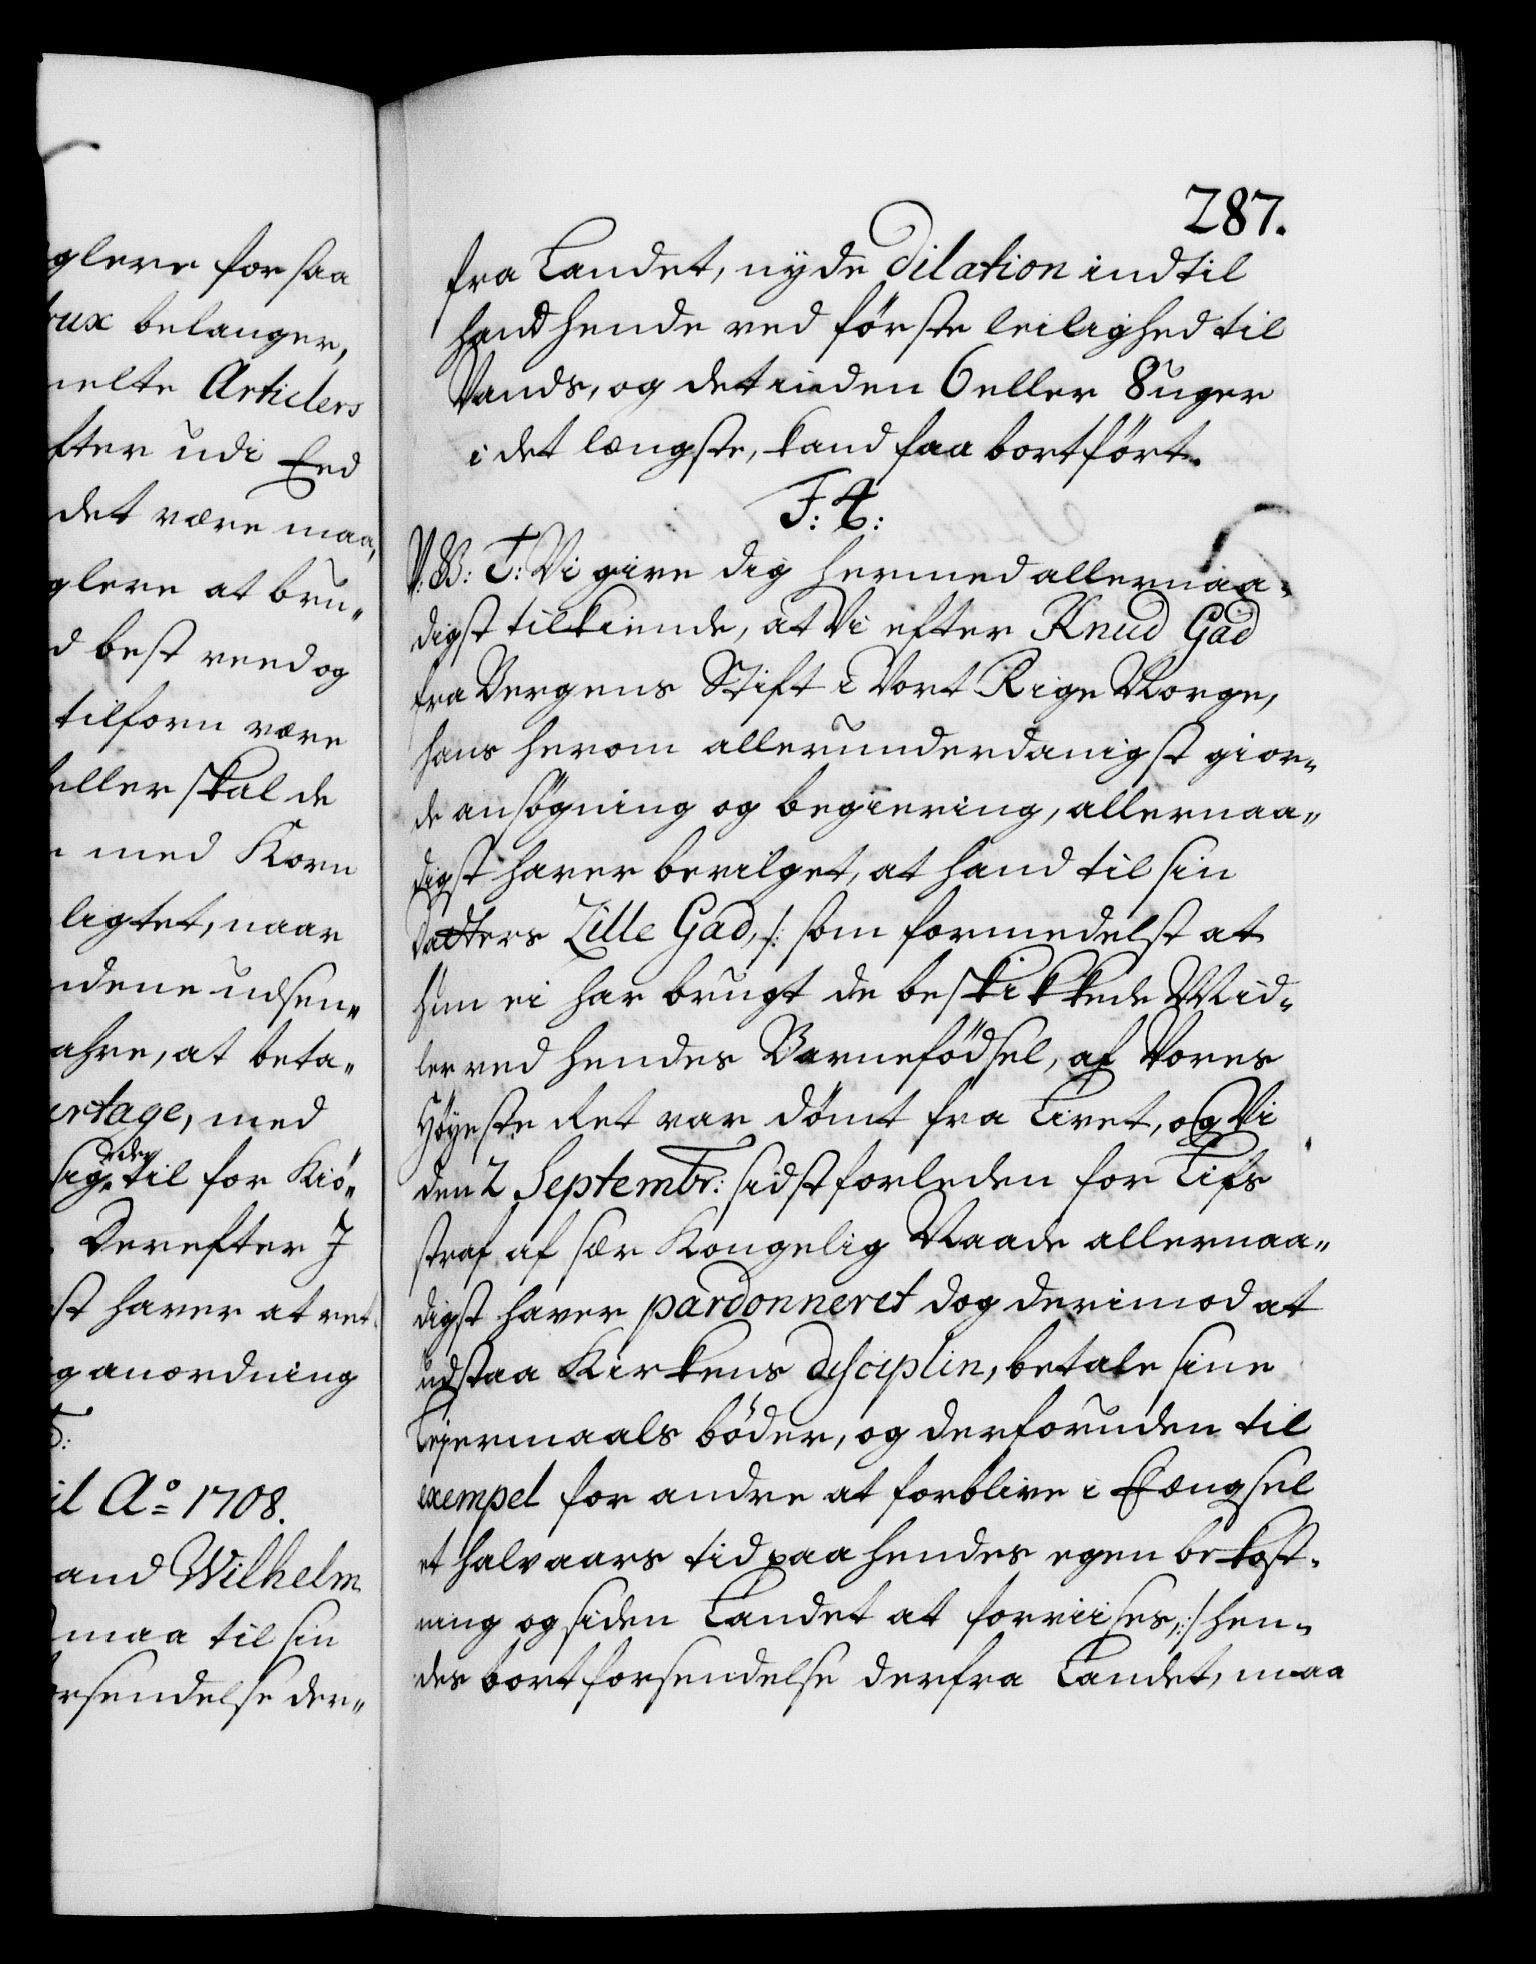 glere for saa
rux belanger,
melte Articlers
fter udi End
det være maa,
glere at bru„
d best veed og
tilforn være
eller skal de
med Korn
ligtet, naar
ndene udsen„
ahre, at beta„
rtage, med
sig der til for Kiö„
Derefter I
st haver at ret
g anordning
il Ao 1708.
and Wilhelm
maa til sin
rsendelse der„
287.
fra Landet, nyde Dilation indtil
hand hende ved förste leilighed til
Vands, og det inden 6 eller 8 uger
i det længste, kand faa bortfört.
F: 4:
V. G: T: Vi give dig hermed allernaa„
digst tilkiende, at Vi efter Knud Gad
fra Bergens Stift i Vort Rige Norge,
hans herom allerunderdanigst gior„
de ansögning og begiering, allernaa„
digst haver bevilget, at hand til sin
Datters Zille Gad, /: som formedelst at
hun ei har brugt de beskikkede Mid„
ler ved hendes Barnefödsel, af Vores
Höyeste Ret var dömt fra Livet, og Vi
den 2 Septembr: sidstforleden for Lifs
straf af sær Kongelig Naade allernaa„
digst haver pardonneret dog derimod at
udstaa Kirkens disciplin, betale sine
Leyermaals böder, og derforuden til
exempel for andre at forblive i Fængsel
et halvaars tid paa hendes egen bekost„
ning og siden Landet at forviises, :/ hen„
des bortforsendelse derfra Landet, maa